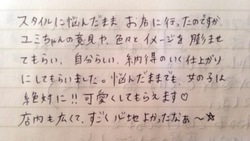 スタイルに悩んだまま お店に行ったのですが
ユミちゃんの意見や、色々とイメージを膨ませ
てもらい、自分らしい、納得のいく仕上がり
にしてもらいました。悩んだままでも、女の子は
絶対に!! 可愛くしてもらえます♡
店内も広くて、すごく心地よかったなぁ〜☆